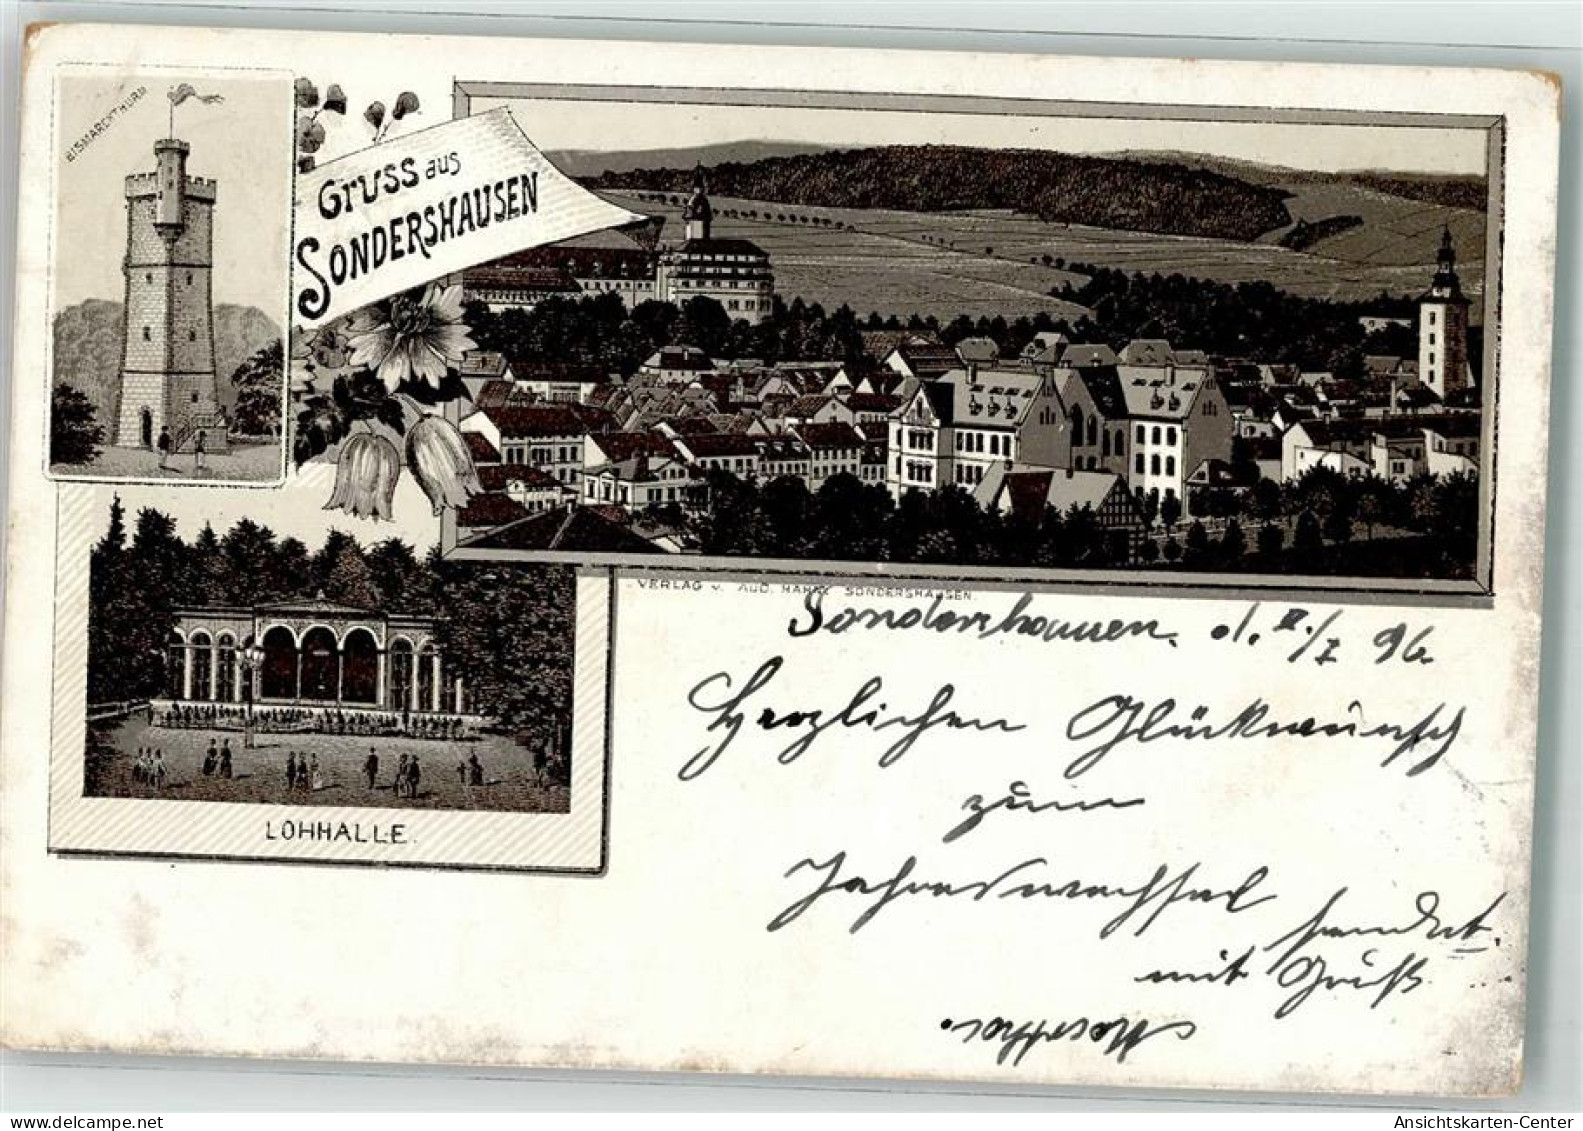 BISMARCKTHURM
Gruss aus
SONDERSHAUSEN
VERLAG v. AUG. SONDERSHAUSEN.
LOHHALLE.
Sondershausen. d. II./I 96.
Herzlichen Glückwunsch
zum
Jahreswechsel
sendet
mit Gruß
www.delcampe.net hanskreczy
Ansichtskarten-Center